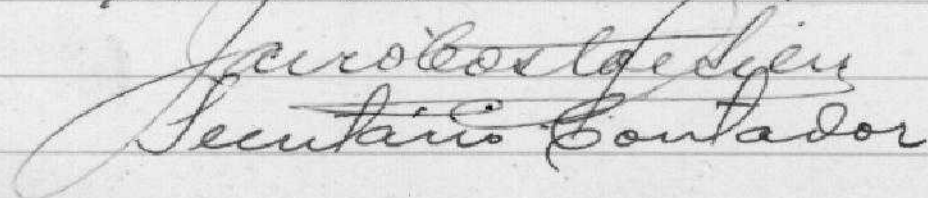 Jairo Costa e
Secretário Contador